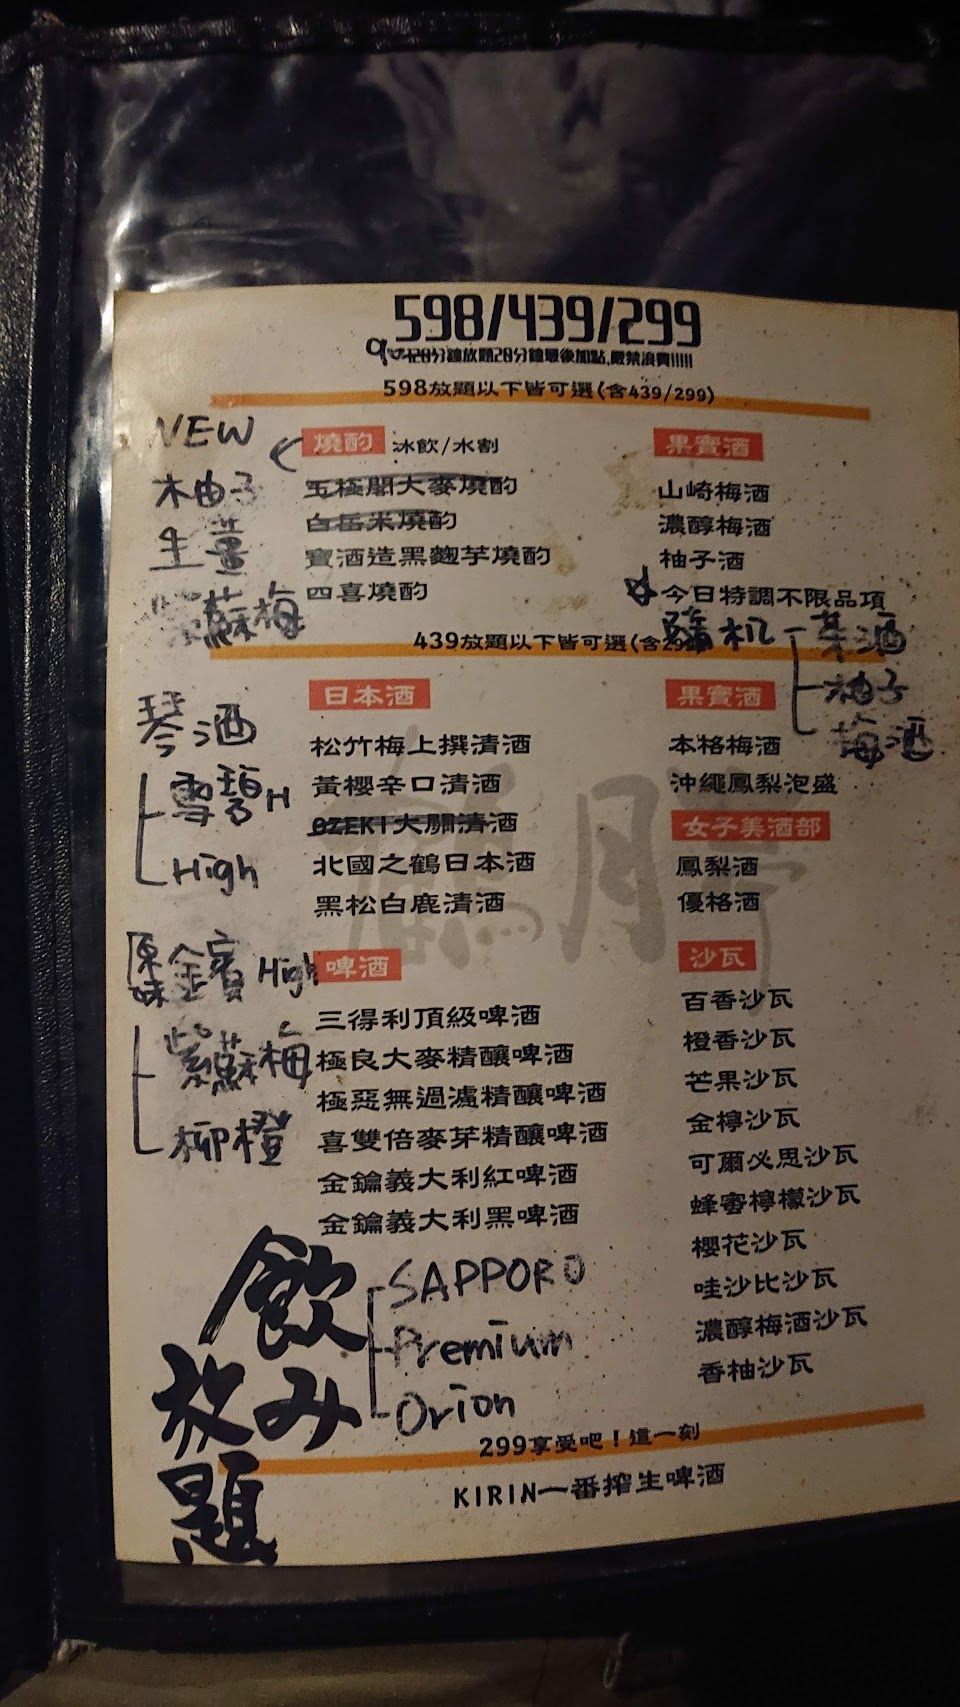 598/439/299
90 120分鐘放題20分鐘最後加點,嚴禁浪費!!!!!
598放題以下皆可選(含439/299)
NEW
柚子
生薑
紫蘇梅
燒酌 冰飲/水割
五極閣大麥燒酌
白岳米燒酌
寶酒造黑麴芋燒酌
四喜燒酌
果實酒
山崎梅酒
濃醇梅酒
柚子酒
今日特調不限品項
隨机
茶酒
柚子
梅酒
439放題以下皆可選(含299)
琴酒
雪碧H
High
日本酒
松竹梅上撰清酒
黃櫻辛口清酒
OZEKI大關清酒
北國之鶴日本酒
黑松白鹿清酒
果實酒
本格梅酒
沖繩鳳梨泡盛
女子美酒部
鳳梨酒
優格酒
原味金賓High
紫蘇梅
柳橙
啤酒
三得利頂級啤酒
極良大麥精釀啤酒
極惡無過濾精釀啤酒
喜雙倍麥芽精釀啤酒
金鑰義大利紅啤酒
金鑰義大利黑啤酒
SAPPORO
Premium
Orion
沙瓦
百香沙瓦
橙香沙瓦
芒果沙瓦
金檸沙瓦
可爾必思沙瓦
蜂蜜檸檬沙瓦
櫻花沙瓦
哇沙比沙瓦
濃醇梅酒沙瓦
香柚沙瓦
飲み
放
題
299享受吧!這一刻
KIRIN一番搾生啤酒